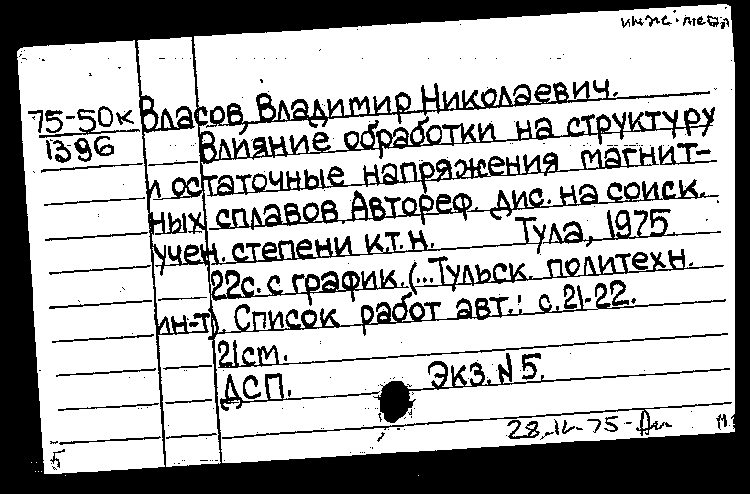 75-50к Власов, Владимир Николаевич.
1396 Влияние обработки на структуру
и остаточные напряжения магнит-
ных сплавов. Автореф. дис. на соиск.
учен. степени к.т.н. Тула, 1975.
22с. с график. (...Тульск. политехн.
ин-т). Список работ авт.: с.21-22.
21см.
ДСП. Экз. №5.
5